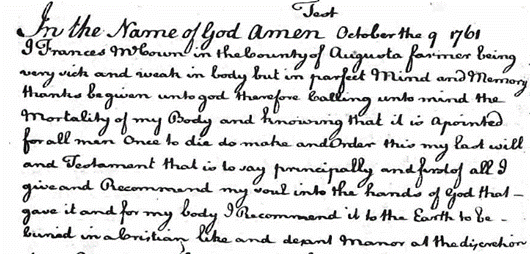 Test
In the Name of God Amen October the 9 1761
I Frances McCown in the County of Augusta farmer being
very sick and weak in body but in parfect Mind and Memory
thanks be given unto god therefore Calling unto mind the
Mortality of my Body and knowing that it is Apointed
for all men Once to die do make and Order this my last will
and Testament that is to say principally and first of all I
give and Recommend my soul into the hands of God that -
gave it and for my body I Recommend it to the Earth to be -
buried in a Cristian like and desant Manor at the discretion